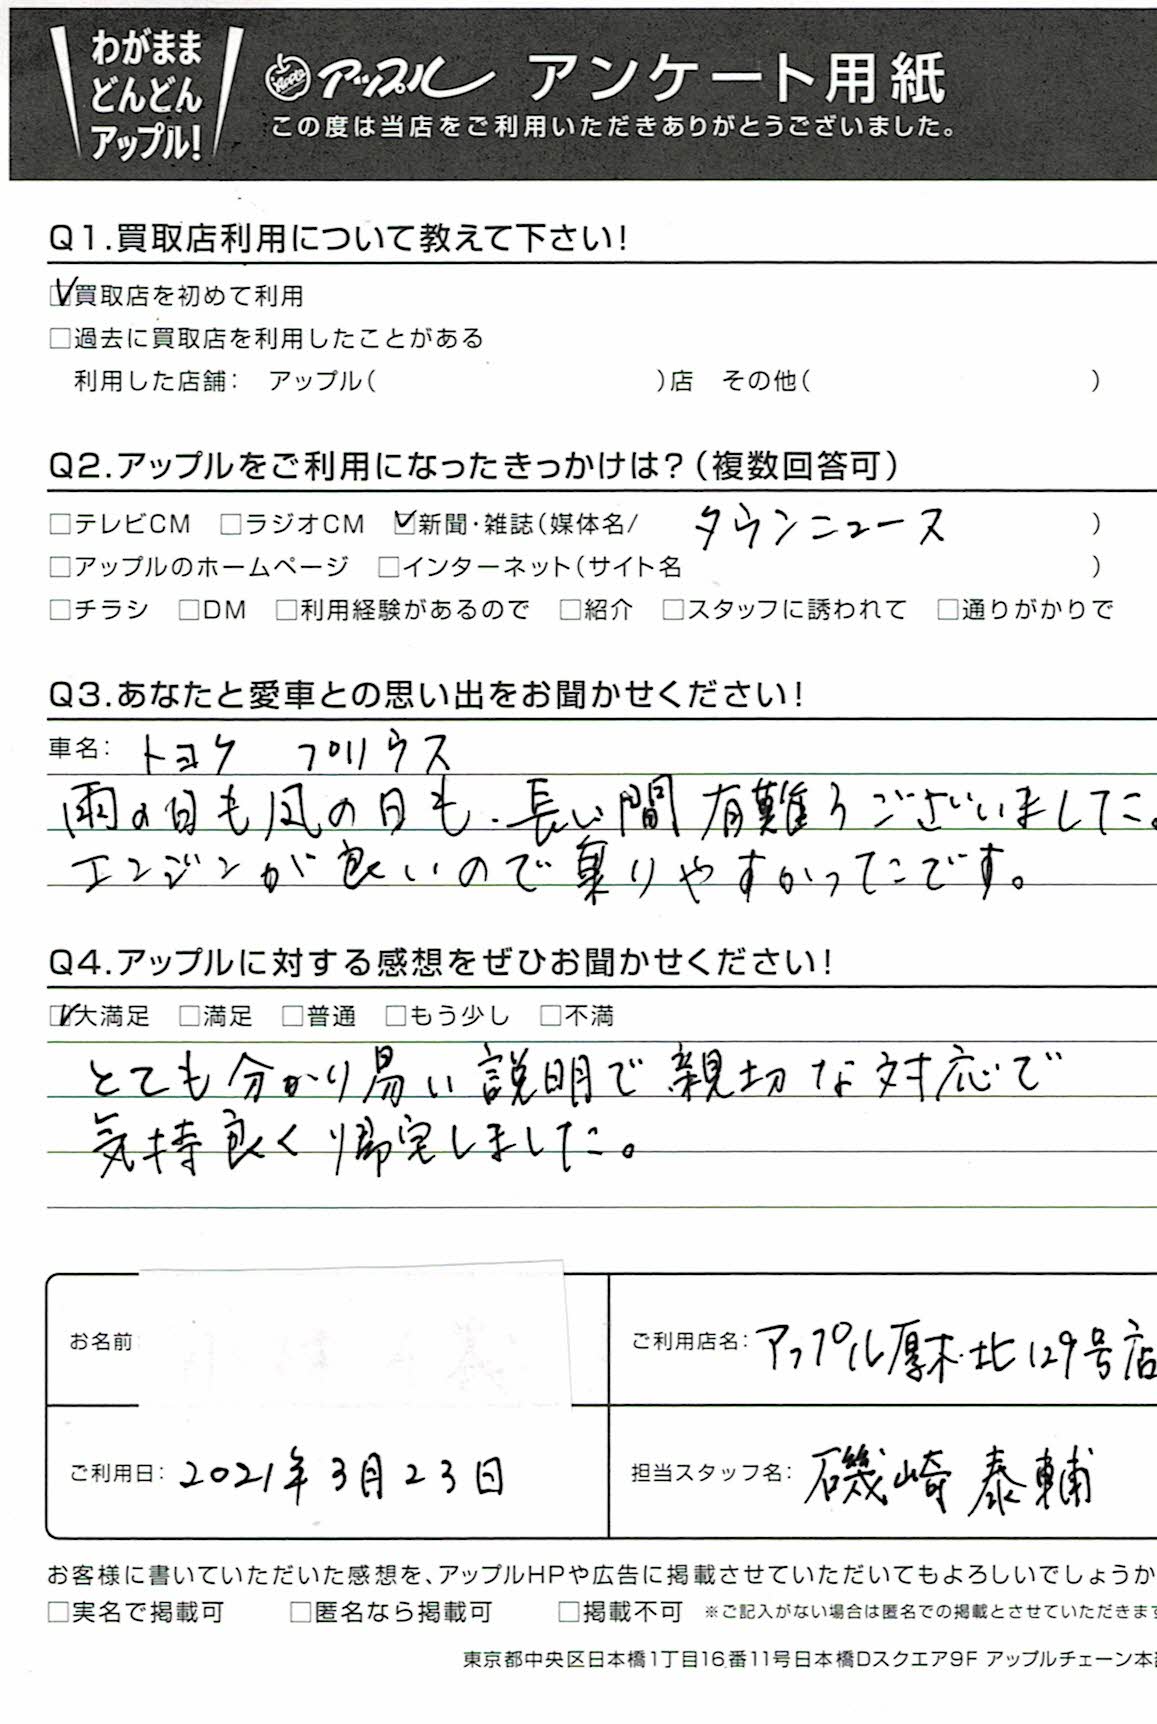 わがまま
どんどん
アップル!
Apple アップル アンケート用紙
この度は当店をご利用いただきありがとうございました。
Q1.買取店利用について教えて下さい!
☑買取店を初めて利用
□過去に買取店を利用したことがある
利用した店舗: アップル( )店 その他( )
Q2.アップルをご利用になったきっかけは?(複数回答可)
□テレビCM □ラジオCM ☑新聞・雑誌(媒体名/ タウンニュース )
□アップルのホームページ □インターネット(サイト名 )
□チラシ □DM □利用経験があるので □紹介 □スタッフに誘われて □通りがかりで
Q3.あなたと愛車との思い出をお聞かせください!
車名: トヨタ プリウス
雨の日も風の日も、長い間有難うございました。
エンジンが良いので乗りやすかったです。
Q4.アップルに対する感想をぜひお聞かせください!
☑大満足 □満足 □普通 □もう少し □不満
とても分かり易い説明で親切な対応で
気持良く帰宅しました。
お名前
ご利用店名: アップル厚木北129号店
ご利用日: 2021年3月23日
担当スタッフ名: 磯崎 泰輔
お客様に書いていただいた感想を、アップルHPや広告に掲載させていただいてもよろしいでしょうか
□実名で掲載可 □匿名なら掲載可 □掲載不可 ※ご記入がない場合は匿名での掲載とさせていただきます
東京都中央区日本橋1丁目16番11号日本橋Dスクエア9F アップルチェーン本